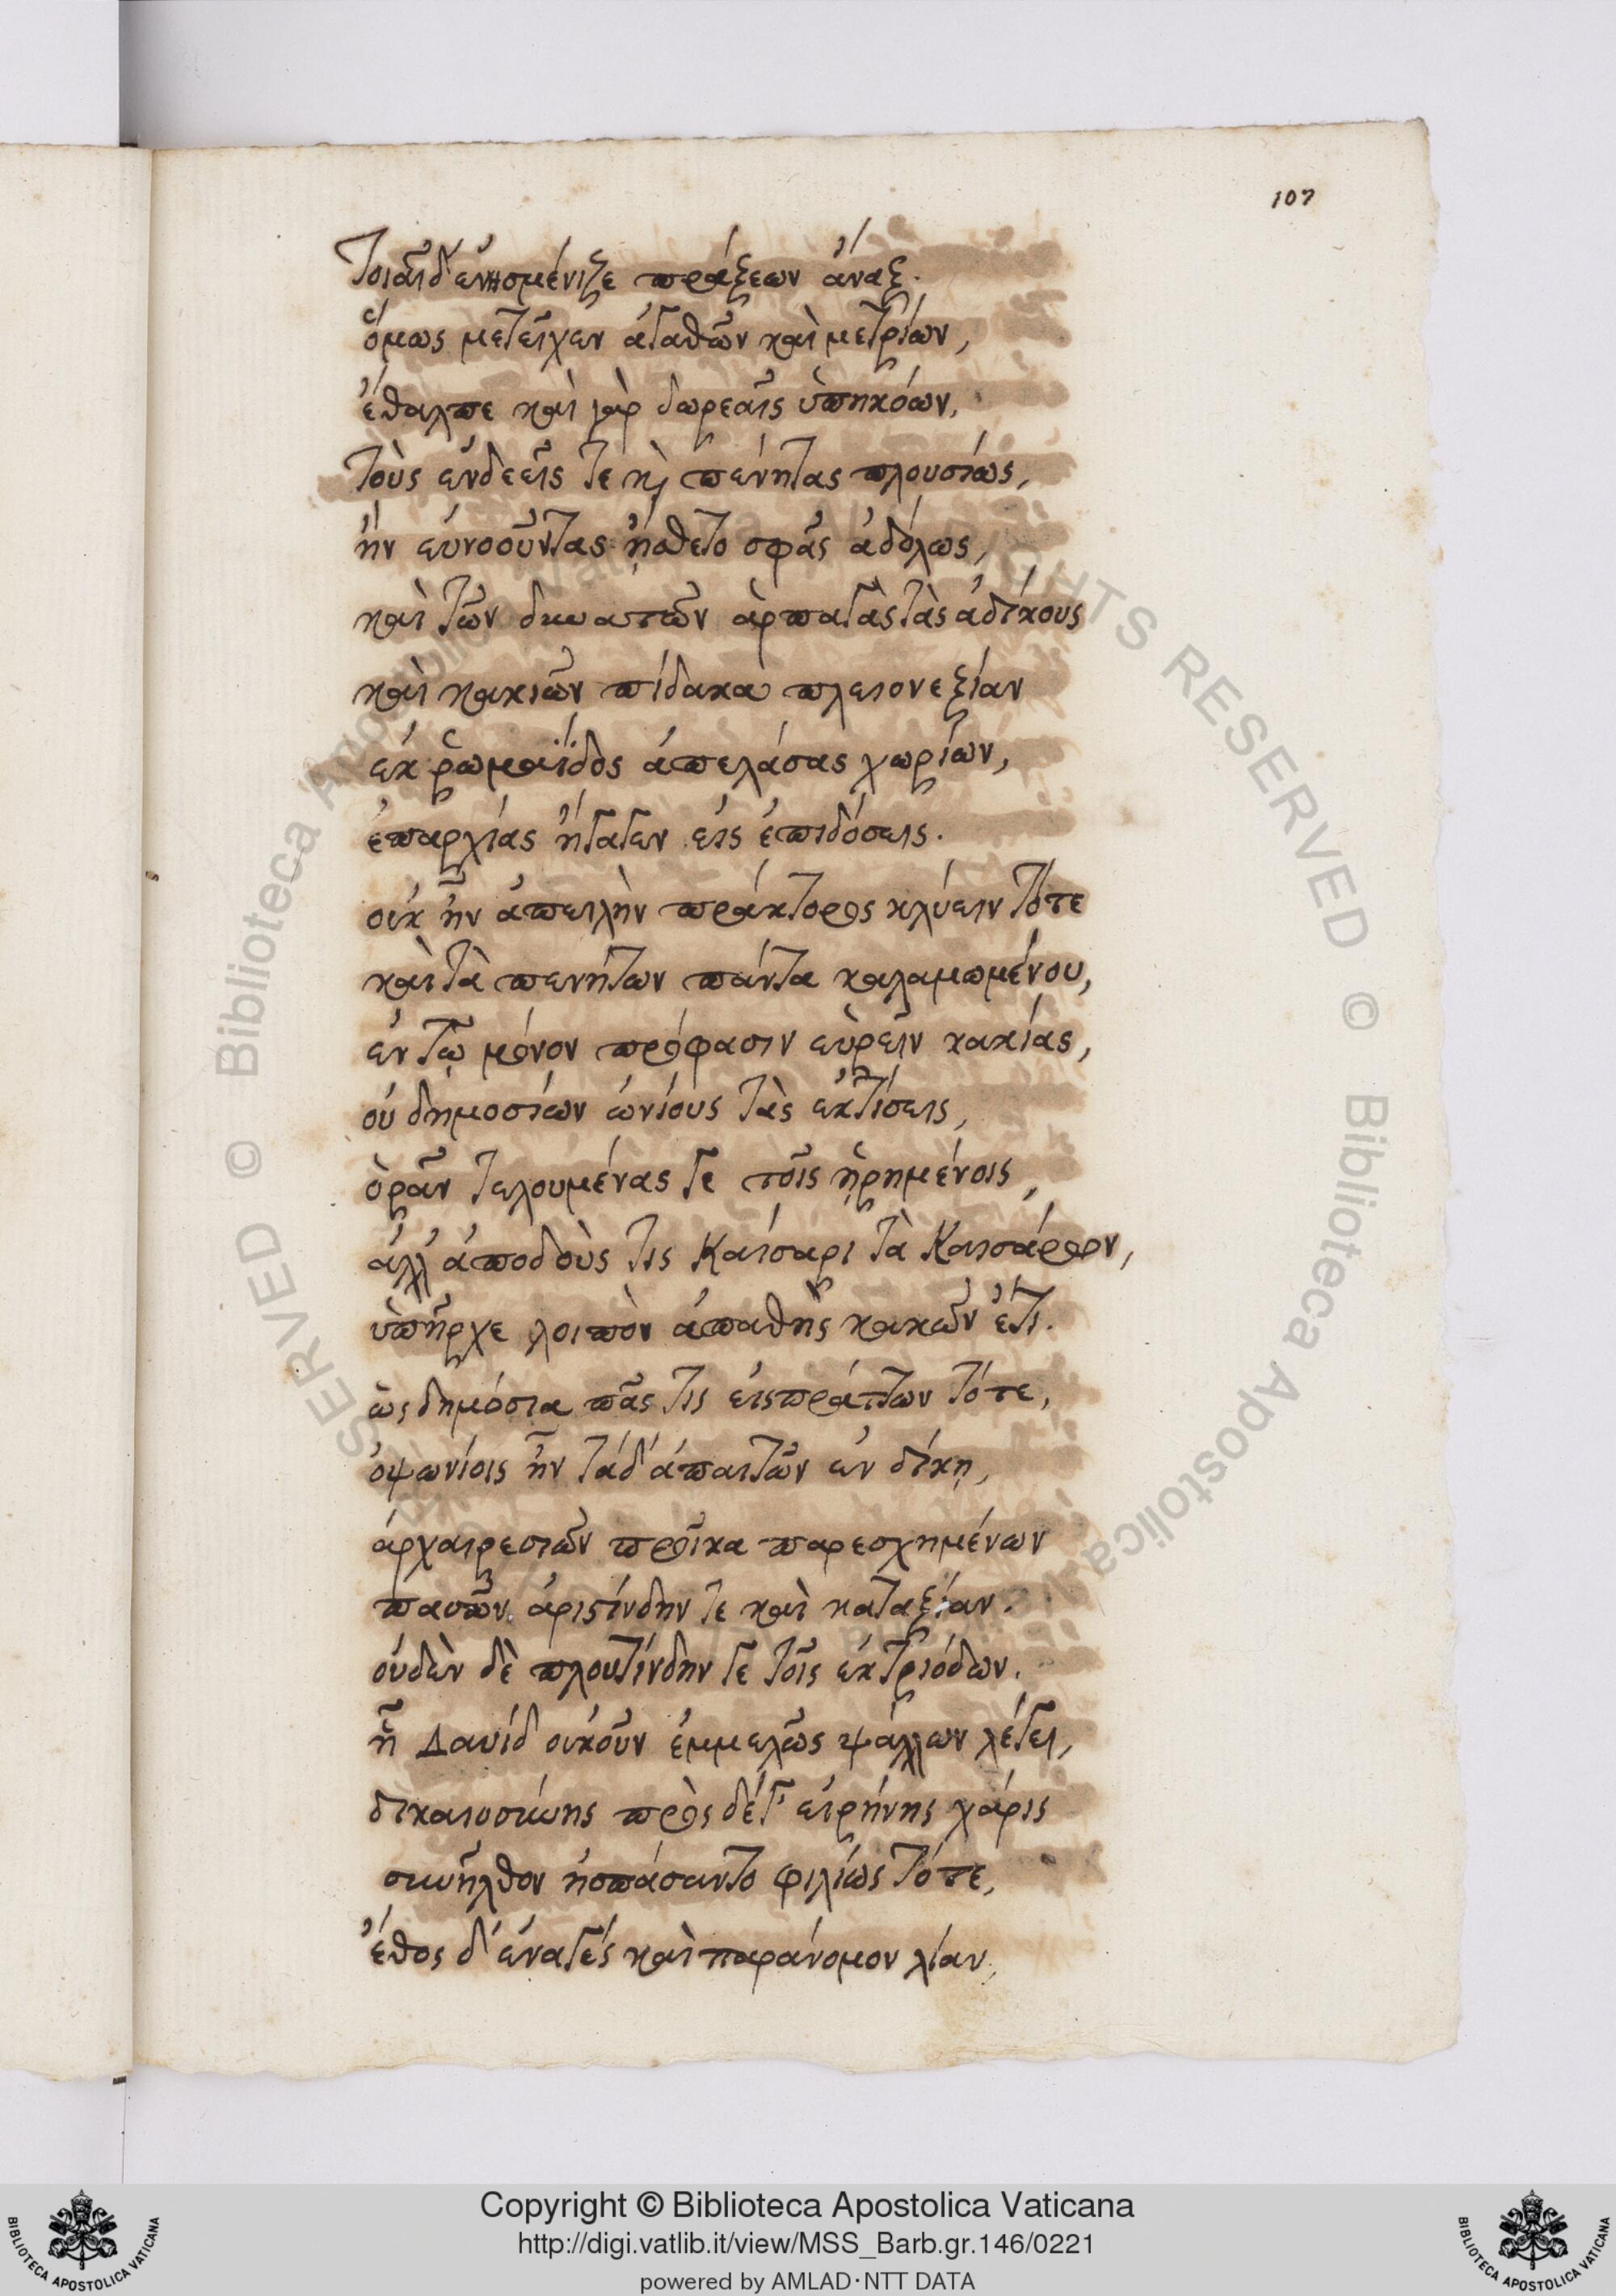 107
Τοιαῖσδ' ἐνησμένιζε πράξεων ἄναξ.
ὅμως μετεῖχεν ἀγαθῶν καὶ μετρίων,
ἔθαλπε καὶ γὰρ δωρεαῖς ὑπηκόων,
τοὺς ἐνδεεῖς τε κὶ πένητας πλουσίως,
ἢν εὐνοοῦντας ᾔσθετο σφᾶς ἀδόλως,
καὶ τῶν δικαστῶν ἁρπαγὰς τὰς ἀδίκους
καὶ κακιῶν πίδακα πλειονεξίαν
ἐκ ῥωμαΐδος ἀπελάσας χωρίων,
ἐπαρχίας ἤγαγεν εἰς ἐπιδόσεις.
οὐκ ἦν ἀπειλὴν πράκτορος κλύειν τότε
καὶ τὰ πενήτων πάντα καλαμωμένου,
ἐν τῷ μόνον πρόφασιν εὑρεῖν κακίας,
οὐ δημοσίων ὠνίους τὰς ἐκτίσεις,
ὁρᾶν τελουμένας γε τοῖς ᾑρημένοις,
ἀλλ' ἀποδοὺς τὶς Καίσαρι τὰ Καισάρων,
ὑπῆρχε λοιπὸν ἀπαθὴς κακῶν ἔτι.
ὡς δημόσια πᾶς τις εἰσπράττων τότε,
ὀψωνίοις ἦν τάδ' ἀπαιτῶν ἐν δίκῃ,
ἀρχαιρεσιῶν προῖκα παρεσχημένων
πασῶν. ἀριστίνδην τε καὶ καταξίαν.
οὐδὲν δὲ πλουτίνδην γε τοῖς ἐκ τριόδων.
ᾗ Δαυίδ οὐκοῦν ἐμμελῶς ψάλλων λέγει,
δικαιοσύνης πρὸς δέ γ' εἰρήνης χάρις
συνῆλθον ἠσπάσαντο φιλίως τότε,
ἔθος δ' ἐναγές καὶ παράνομον λίαν,
Copyright © Biblioteca Apostolica Vaticana
http://digi.vatlib.it/view/MSS_Barb.gr.146/0221
powered by AMLAD·NTT DATA
BIBLIOTECA APOSTOLICA VATICANA
BIBLIOTECA APOSTOLICA VATICANA